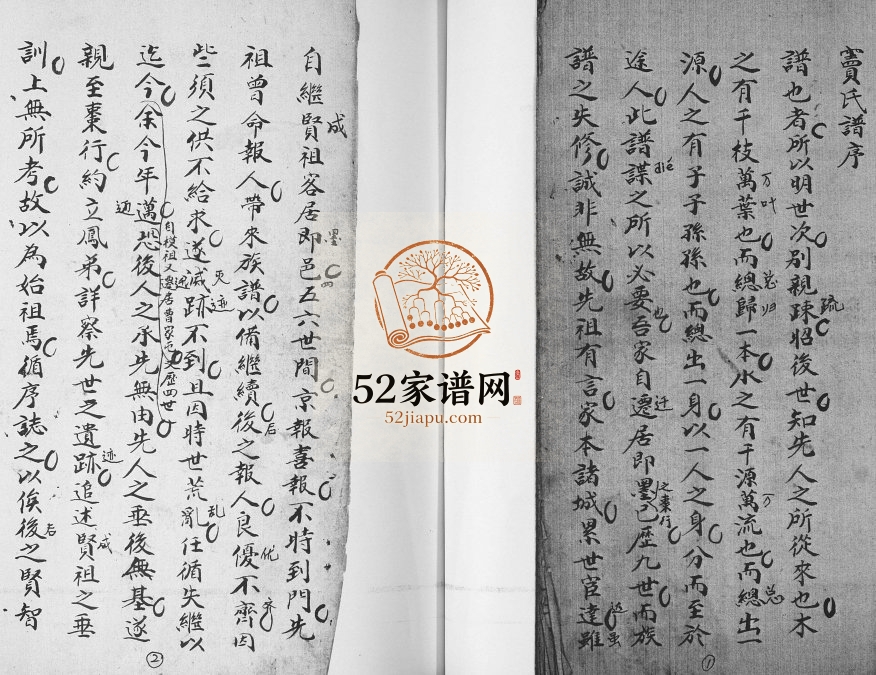 竇氏譜序
譜也者所以明世次別親疎昭後世知先人之所從來也木
之有千枝萬葉也而總歸一本水之有千源萬流也而總出一
源人之有子子孫孫也而總出一身以一人之身分而至於
途人此譜諜之所以必要吾家自遷居即墨已歷九世而族
譜之失修誠非無故先祖有言家本諸城累世宦達雖
疏
万叶
总归
万
总
dié
也
迁
足东行
达虽
①
自繼賢祖客居即邑五六世間京報喜報不時到門先
祖曾命報人帶來族譜以備繼續後之報人良優不齊因
些須之供不給求遂滅跡不到且因時世荒亂任循失繼以
迄今余今年邁恐後人之承先無由先人之垂後無基遂
自模祖又遷居曹家又歷四世
親至棗行約立鳳弟詳察先世之遺跡追述賢祖之垂
訓上無所考故以為始祖焉循序誌之以俟後之賢智
成
墨
四
后
优
齐
灭迹
乱
迈
迹
成
后
②
52家谱网
52jiapu.com